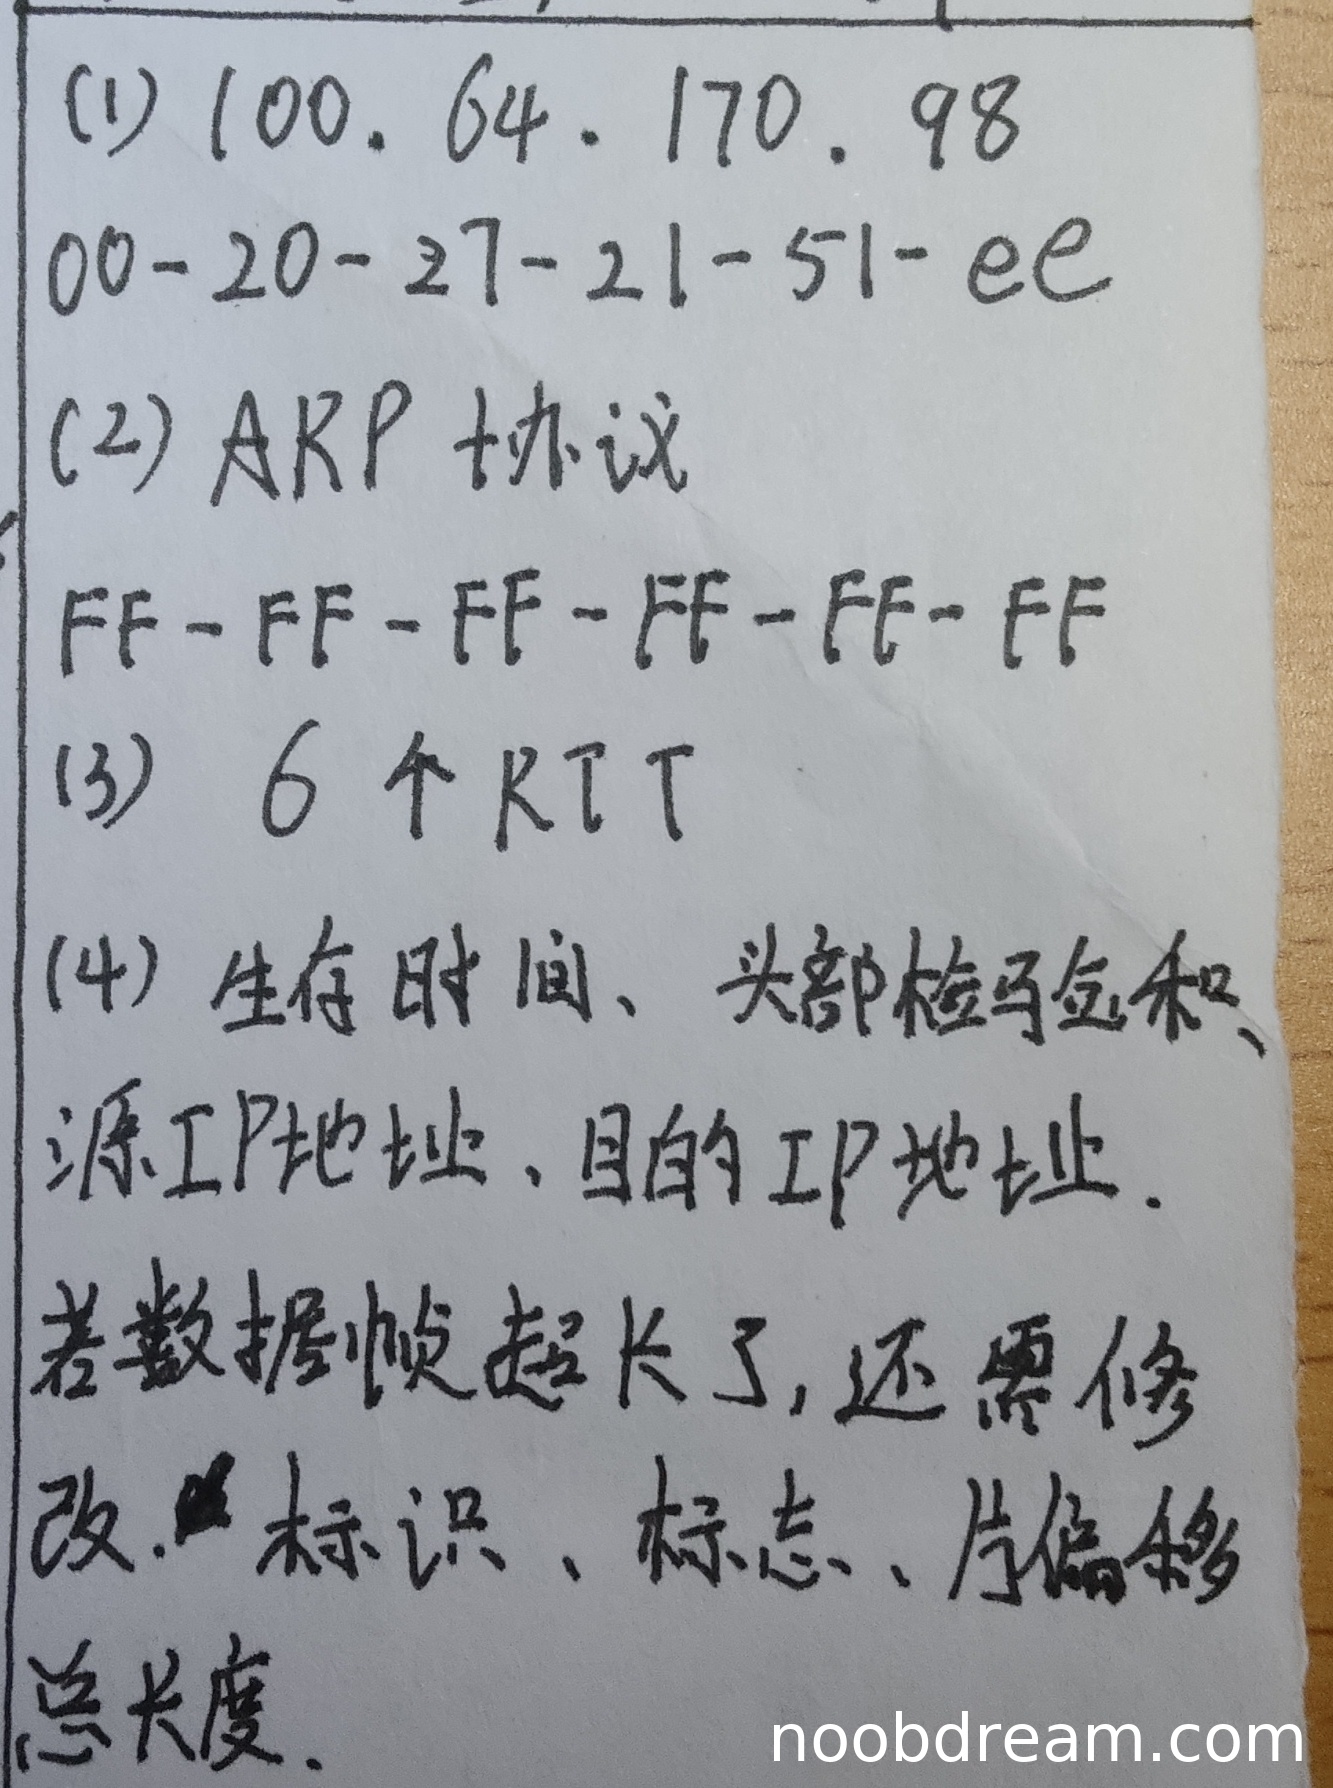 (1) 100.64.170.98
00-20-27-21-51-ee
(2) ARP协议
FF-FF-FF-FF-FF-FF
(3) 6个RTT
(4) 生存时间、头部检验和、
源IP地址、目的IP地址.
若数据帧超长了,还需修
改. 标识、标志、片偏移
总长度.
noobdream.com